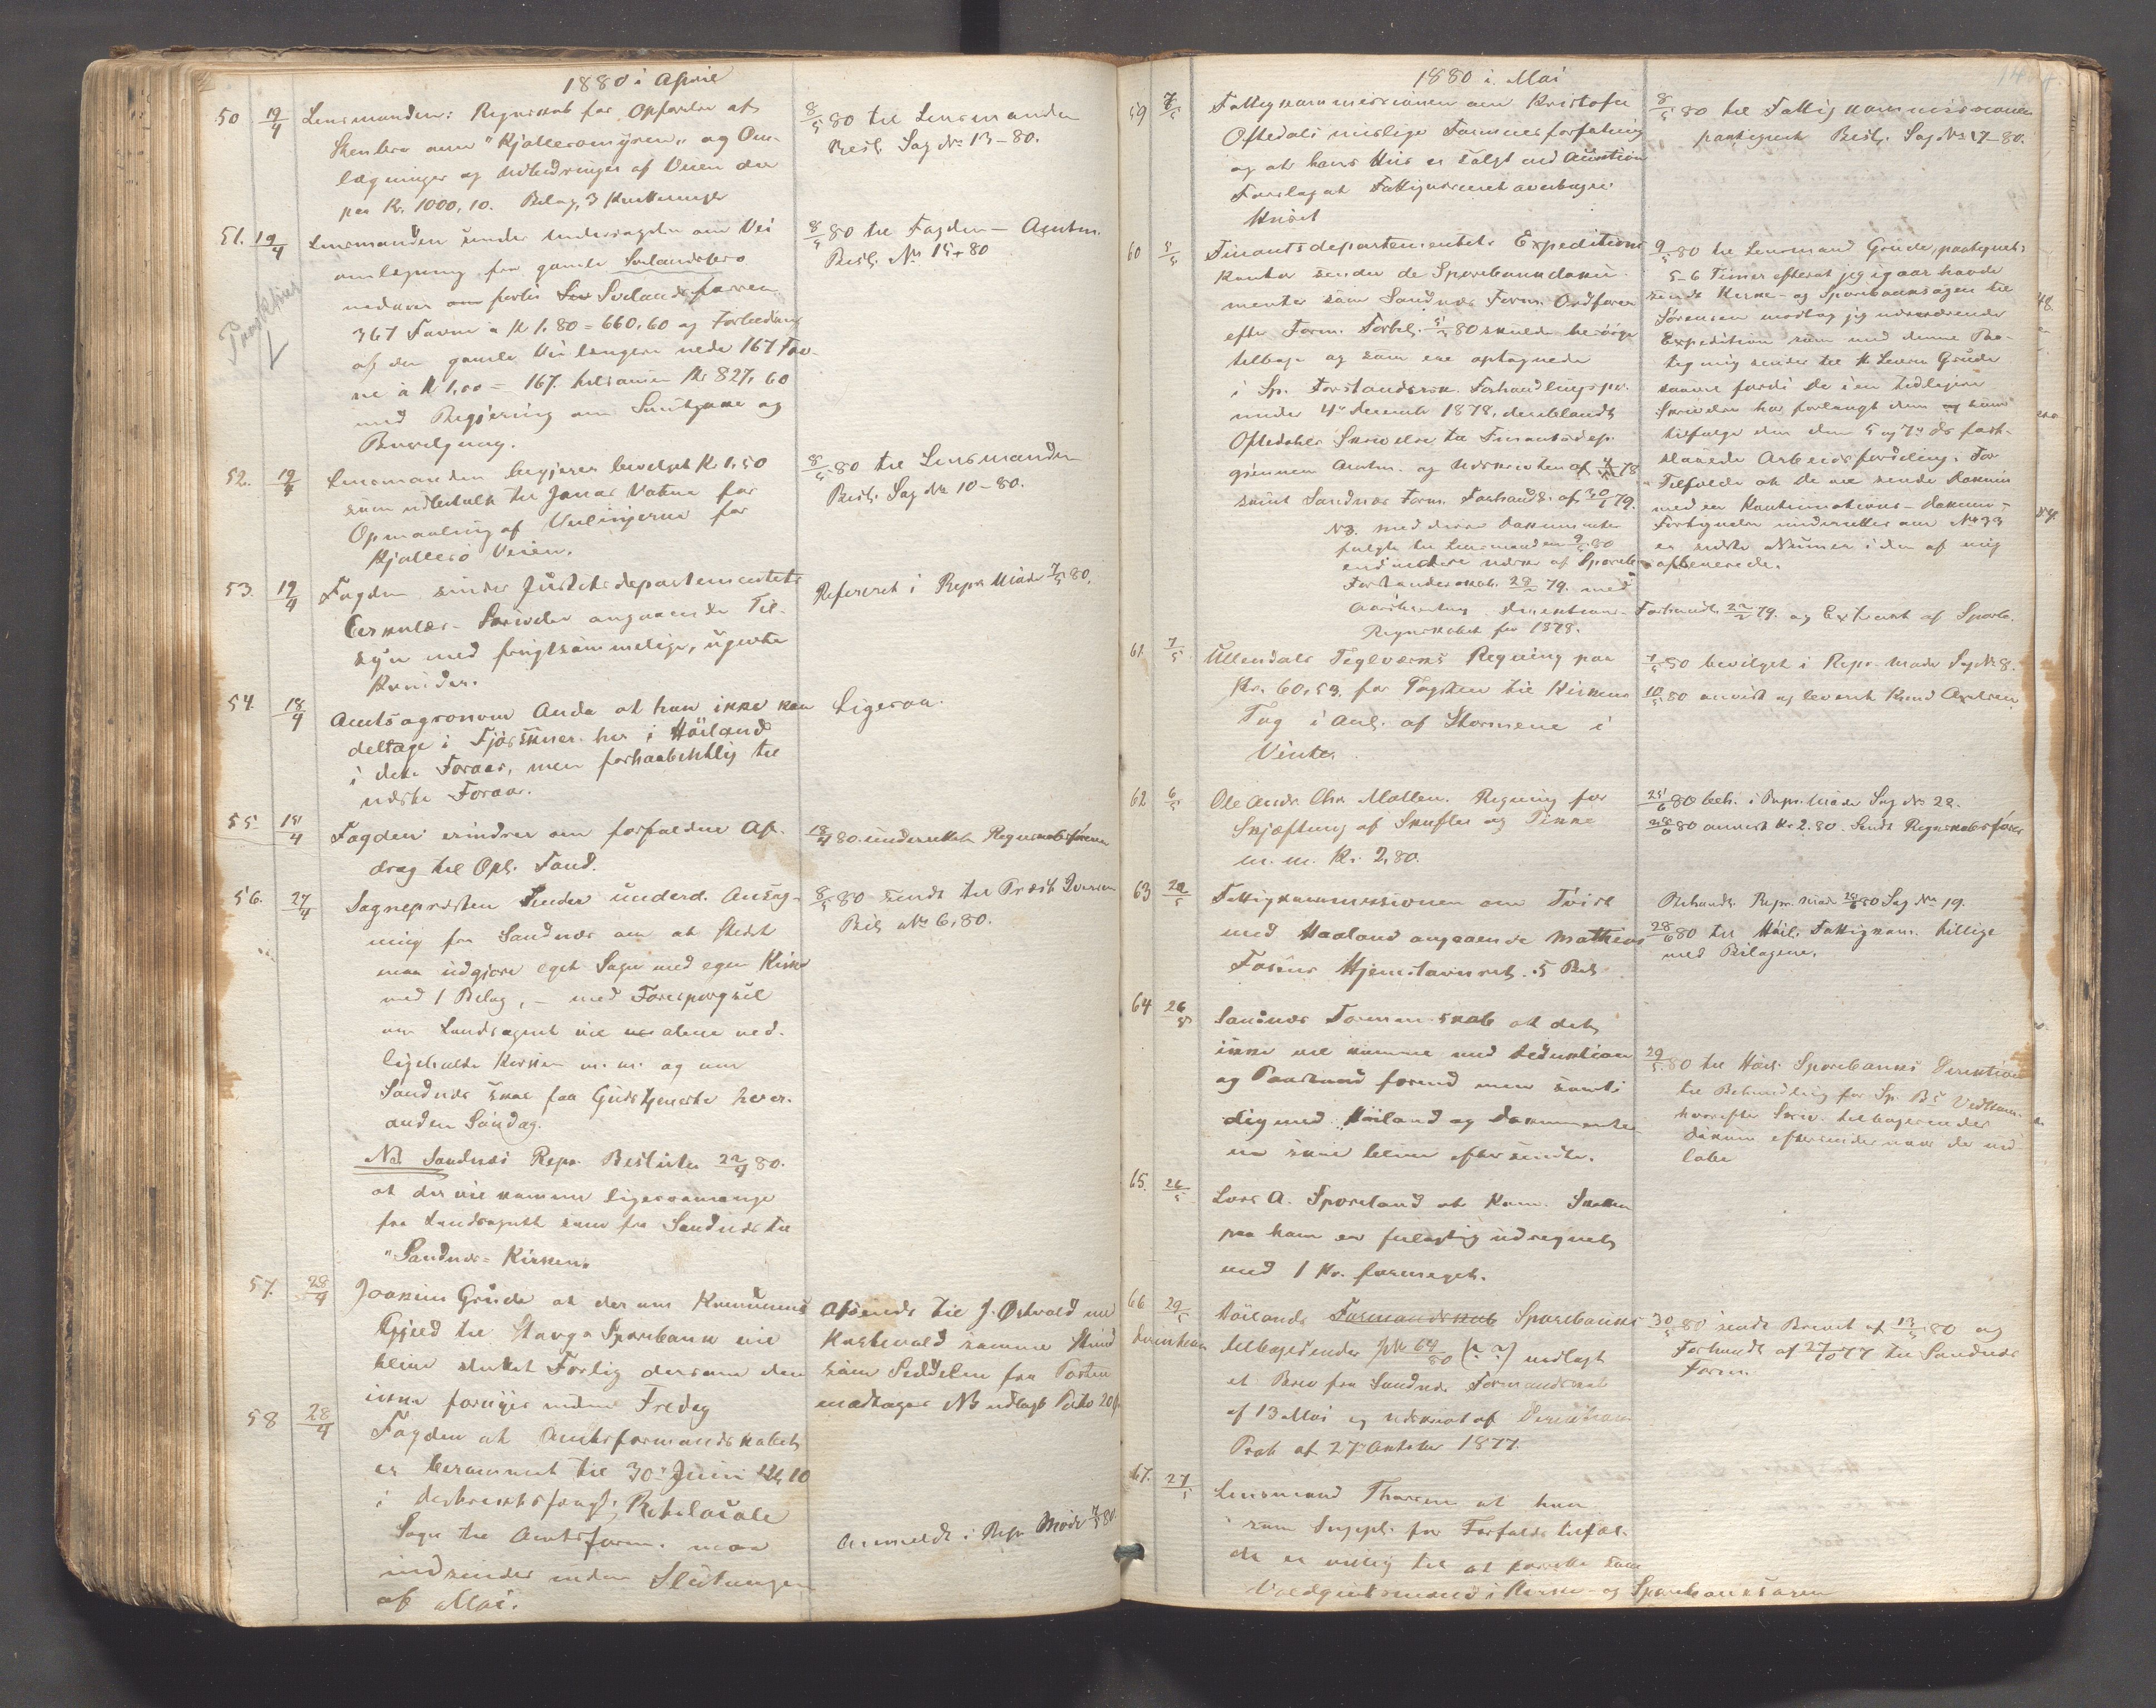 1880 i April
50 19/4 Lensmanden: Regnskab for Opførelse af
Stenbro over "Kjølleromyren" og Om-
lægninger og Udbedringer af Veien der
paa Kr. 1000,10. Bilag, 3 Kvitteringer
8/5 80 til Lensmanden
Besl. Sag No 13-80.
51. 19/4 Lensmanden sender Undersøgelse om Vei
omlægning fra gamle Sørlandsbro
nedover forbi Sørlandsfossen
367 Favne à Kr 1.80 = 660,60 og Forbedring
af den gamle Vei længere nede 167 Fav-
ne à Kr 1,00 = 167. tilsammen Kr 827,60
med Begjæring om Samtykke og
Bevilgning.
8/5 80 til Fogden - Amtm.
Besl. No 15-80
52. 19/4 Lensmanden begjærer bevilget Kr 1,50
som udbetalt til Jonas Vatne for
Opmaaling af Veilinjerne for
Kjøllerö Veien.
8/5 80 til Lensmanden
Besl. Sag No 10-80.
53. 19/4 Fogden sender Justitsdepartementets
Cirkulær-Skrivelse angaaende Til-
syn med frugtsommelige, ugivte
Kvinder.
Refereret i Repr. Møde 7/5 80.
54 18/4 Amtsagronom Anda at han ikke kan
deltage i Fjøsskuer her i Høiland
i dette Foraar, men forhaabentlig til
næste Foraar.
Ligesaa.
55 18/4 Fogden erindrer om forfaldne Af-
drag til Opl. Fond.
18/4 80. underrettet Regnskabsføreren
56. 27/4 Sognepresten Sender underd. Ansøg-
ning fra Sandnæs om at Stedet
maa udgjøre eget Sogn med egen Kirke
med 1 Bilag, - med Forespørgsel
om Landsognet vil alene ved-
ligeholde Kirken m. m. og om
Sandnæs skal faa Gudstjeneste hver
anden Söndag.
NB Sandnæs Repr. Beslutter 22/4 80.
at der vil komme ligesaamange
fra Landsognet som fra Sandnæs til
"Sandnæs-Kirken.
8/5 80 sendt til Præst Iversen
Besl. No 6,80.
57. 28/4 Joakim Grude at der om Kommunens
Gjeld til Stavgr Sparebank vil
blive sluttet Forlig dersom den
ikke fornyes inden Fredag
Afsendt til J. Østvold ved
Kastevold samme Stund
som Seddelen fra Posten
modtages NB udlagt Porto 20
58 28/4 Fogden at Amtsformandskabet
er berammet til 30' Juni Kl. 10
i Rekelasale
Sager til Amtsform. maa
indsendes inden Slutningen
af Mai.
Anmeldt i Repr Møde 7/5 80
1880 i Mai
59 7/5 Fattigkommissionen om Kristofer
Oftedals mislige Formuesforfatning
og at hans Hus er solgt ved Auktion
Forslag at Fattigvæsenet overtager
Huset
8/5 80 til Fattigkommissionen
paategnet Besl. Sag No 17-80.
60 5/5 Finantsdepartementets Expeditions
kontor sender de Sparebankdoku-
menter som Sandnæs Form. Ordfører
efter Form. Forbeh. 80 skulde besørge
tilbage og som ere optagnede
i Sp. Forstandersk. Forhandlingspr.
under 4de Decemb 1878, deriblandt
Oftedahls Skrivelse til Finantsdep.
gjennem Amtm. og Udskriften af 78
samt Sandnæs Form. Forhandl. af 30/1 79.
NB. med disse Dokumenter
fulgte til Lensmanden 9/5 80
endvidere Udskr. af Sparebk
Forstanderskab. 79. med
Regnskabet for 1878.
9/5 80 til Lensmand Grude, paategnet:
5-6 Timer efterat jeg igaar havde
sendt Kirke- og Sparebanksagen til
Sørensen modtog jeg nærværende
Expedition som med denne Paa-
tegning sendes til Hr Lensm Grude
saavel fordi De i en tidligere
Skrivelse har forlangt dem og som
tilfølge den dem 5 og 7de ds fast-
slaaede Arbeidsfordeling. For
Tilfælde at De vil sende Dokum
med en Kontinuations-Dokum-
Fortegnelse underrettes om No 33
er sidste Nummer i den af mig
afleverede.
Forhandl. 79. og Extrakt af Spareb.
61. 7/5 Ullendals Teglværks Regning paa
Kr. 60,53. for Tagsten til Kirkens
Tag i Anl. af Stormene i
Vinter.
7/5 80 bevilget i Repr. Møde Sag No 8.
10/5 80 anvist og leveret Knud Axelsen
62 6/5 Ole Andr. Chr. Mollen. Regning for
Skjæftning af Skufler og Tinke
m. m. Kr. 2,80.
25/6 80 beh. i Repr. Møde Sag No 22.
28/6 80 anvist Kr 2.80. Sendt Regnskabsfører
63 22/5 Fattigkommissionen om Tvist
med Haaland angaaende Mathias
Fosens Hjemstavnsret. 5 Bil.
Behandl. Repr. Møde 25/6 80 Sag No 19.
28/6 80 til Høil. Fattigkom. tillige
med Bilagene.
64 26/5 Sandnæs Formanskab at det
ikke vil komme med Deduktion
og Paastand forend men samti-
dig med Høiland og Dokumenter
ne skal blive eftersendt.
29/5 80 til Høil. Sparebanks Direktion
til Behandling for Sp. Bs Vedkom.
hvorefter Skriv. tilbagesendes
Dokum eftersendes naar de ind
løbe
65. 26/5 Lars A. Sporeland at Kom. Skatten
paa ham er feilagtig udregnet
med 1 Kr. formeget.
66 29/5 Høilands Formandskab Sparebanks
Direktion tilbagesender J No 64/80 (? ?) vedlagt
et Brev fra Sandnæs Formandskab
af 13 Mai og Udskrivt af Direktions
Prot af 27 Oktober 1877.
30/5 80 sendt Brevet af 13/5 80 og
Forhandl. af 27/10 77 til Sandnæs
Form.
67. 27/5 Lensmand Thorsen at han
som Suppl. for Forfalds tilfæl-
de er villig til at fungere som
Voldgiftsmand i Kirke- og Sparebanksagen